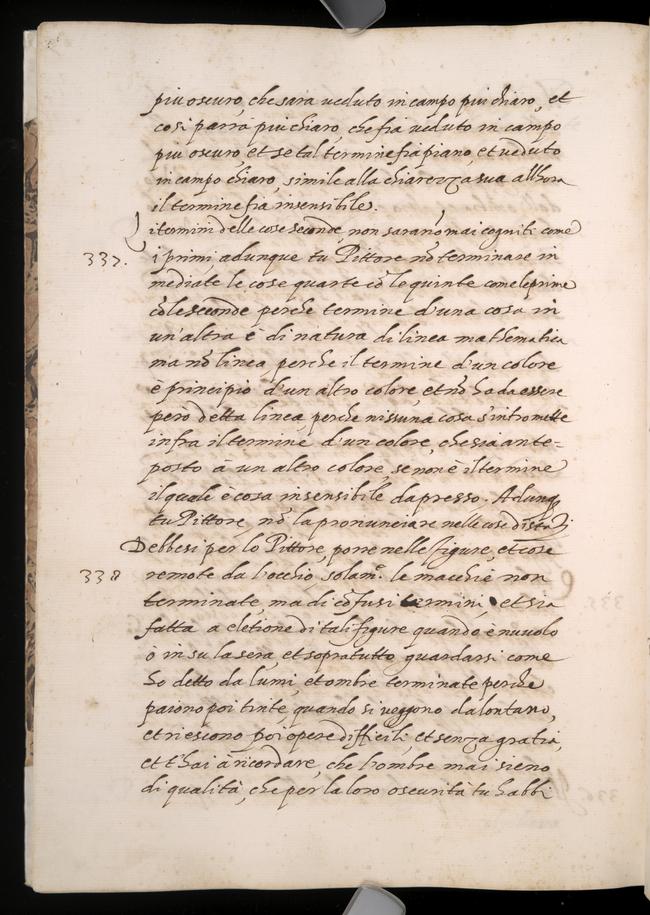 piu oscuro, che sara veduto in campo piu chiaro, et
cosi parra piu chiaro, che fia veduto in campo
piu oscuro, et se tal termine fia piano, et veduto
in campo chiaro, simile alla chiarezza sua allhora
il termine fia insensibile.
i termini delle cose seconde, non sarano mai cogniti come
337. i primi, adunque tu Pittore nō terminare in
mediate le cose quarte cō le quinte come le prime
cō le seconde perche termine d'una cosa in
un'altra è di natura di linea mathematica
ma nō linea, perche il termine d'un colore
è principio d'un altro colore, et nō ha da essere
però detta linea, perche nissuna cosa s'intromette
infra il termine d'un colore, che sia ante=
posto à un altro colore, se non è il termine
il quale è cosa insensibile da presso. Adunq
tu Pittore, nō la pronunciare nelle cose distāti
Debbesi per lo Pittore, porre nelle figure, et cose
338 remote da l'occhio, solam.e le macchie non
terminate, ma di cōfusi termini, et sia
fatta a eletione di tali figure quando è nuvolo
ò in su la sera, et sopratutto guardarsi come
ho detto da lumi, et ombre terminate perche
paiono poi tinte, quando si veggono da lontano,
et riescono poi opere difficili, et senza gratia,
et t'hai à ricordare, che l'ombre mai sieno
di qualità, che per la loro oscurità tu habbi